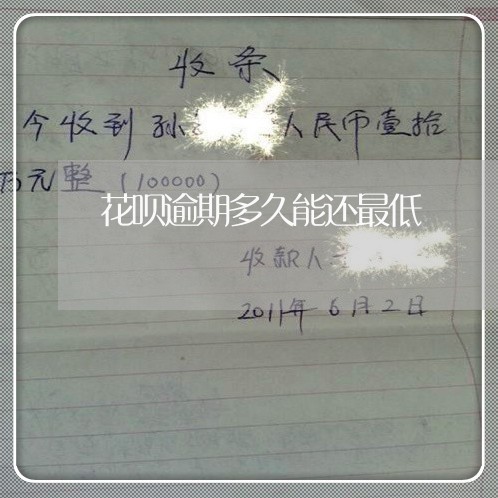 收条
今收到孙 人民币壹拾
万元整（100000）
花呗逾期多久能还最低
收款人
2011年6月2日